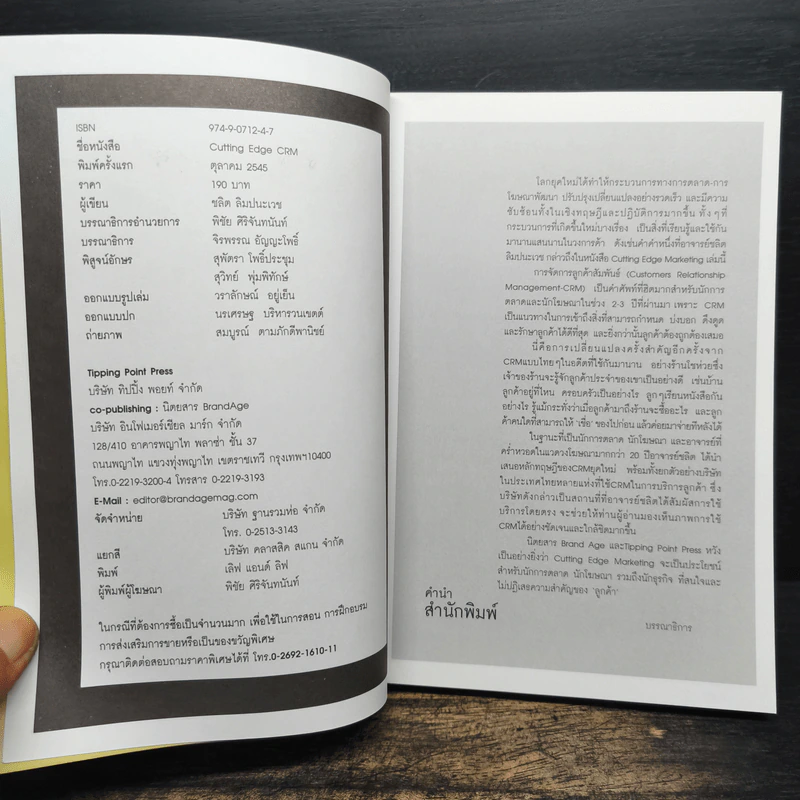 ISBN 974-9-0712-4-7
ชื่อหนังสือ Cutting Edge CRM
พิมพ์ครั้งแรก ตุลาคม 2545
ราคา 190 บาท
ผู้เขียน ชลิต ลิมปนะเวช
บรรณาธิการอำนวยการ พิชัย ศิริจันทนันท์
บรรณาธิการ จิรพรรณ อัญญะโพธิ์
พิสูจน์อักษร สุพัตรา โพธิ์ประชุม
สุวิทย์ พุ่มพิทักษ์
ออกแบบรูปเล่ม วราลักษณ์ อยู่เย็น
ออกแบบปก นรเศรษฐ บริหารวนเขตต์
ถ่ายภาพ สมบูรณ์ ตามภักดีพานิชย์
Tipping Point Press
บริษัท ทิปปิ้ง พอยท์ จำกัด
co-publishing : นิตยสาร BrandAge
บริษัท อินโฟเมอร์เชียล มาร์ก จำกัด
128/410 อาคารพญาไท พลาซ่า ชั้น 37
ถนนพญาไท แขวงทุ่งพญาไท เขตราชเทวี กรุงเทพฯ10400
โทร.0-2219-3200-4 โทรสาร 0-2219-3193
E-Mail : editor@brandagemag.com
จัดจำหน่าย บริษัท ฐานรวมห่อ จำกัด
โทร. 0-2513-3143
แยกสี บริษัท คลาสสิค สแกน จำกัด
พิมพ์ เลิฟ แอนด์ ลิฟ
ผู้พิมพ์ผู้โฆษณา พิชัย ศิริจันทนันท์
ในกรณีที่ต้องการซื้อเป็นจำนวนมาก เพื่อใช้ในการสอน การฝึกอบรม
การส่งเสริมการขายหรือเป็นของขวัญพิเศษ
กรุณาติดต่อสอบถามราคาพิเศษได้ที่ โทร.0-2692-1610-11
โลกยุคใหม่ได้ทำให้กระบวนการทางการตลาด-การ
โฆษณาพัฒนา ปรับปรุงเปลี่ยนแปลงอย่างรวดเร็ว และมีความ
ซับซ้อนทั้งในเชิงทฤษฎีและปฏิบัติการมากขึ้น ทั้งๆที่
กระบวนการที่เกิดขึ้นใหม่บางเรื่อง เป็นสิ่งที่เรียนรู้และใช้กัน
มานานแสนนานในวงการค้า ดังเช่นคำคำหนึ่งที่อาจารย์ชลิต
ลิมปนะเวช กล่าวถึงในหนังสือ Cutting Edge Marketing เล่มนี้
การจัดการลูกค้าสัมพันธ์ (Customers Relationship
Management-CRM) เป็นคำศัพท์ที่ฮิตมากสำหรับนักการ
ตลาดและนักโฆษณาในช่วง 2-3 ปีที่ผ่านมา เพราะ CRM
เป็นแนวทางในการเข้าถึงสิ่งที่สามารถกำหนด บ่งบอก ดึงดูด
และรักษาลูกค้าได้ดีที่สุด และยิ่งกว่านั้นลูกค้าต้องถูกต้องเสมอ
นี่คือการเปลี่ยนแปลงครั้งสำคัญอีกครั้งจาก
CRMแบบไทยๆในอดีตที่ใช้กันมานาน อย่างร้านโชห่วยซึ่ง
เจ้าของร้านจะรู้จักลูกค้าประจำของเขาเป็นอย่างดี เช่นบ้าน
ลูกค้าอยู่ที่ไหน ครอบครัวเป็นอย่างไร ลูกๆเรียนหนังสือกัน
อย่างไร รู้แม้กระทั่งว่าเมื่อลูกค้ามาถึงร้านจะซื้ออะไร และลูก
ค้าคนใดที่สามารถให้ 'เชื่อ' ของไปก่อน แล้วค่อยมาจ่ายทีหลังได้
ในฐานะที่เป็นนักการตลาด นักโฆษณา และอาจารย์ที่
คร่ำหวอดในแวดวงโฆษณามากกว่า 20 ปีอาจารย์ชลิต ได้นำ
เสนอหลักทฤษฎีของCRMยุคใหม่ พร้อมทั้งยกตัวอย่างบริษัท
ในประเทศไทยหลายแห่งที่ใช้CRMในการบริการลูกค้า ซึ่ง
บริษัทดังกล่าวเป็นสถานที่ที่อาจารย์ชลิตได้สัมผัสการใช้
บริการโดยตรง จะช่วยให้ท่านผู้อ่านมองเห็นภาพการใช้
CRMได้อย่างชัดเจนและใกล้ชิดมากขึ้น
นิตยสาร Brand Age และTipping Point Press หวัง
เป็นอย่างยิ่งว่า Cutting Edge Marketing จะเป็นประโยชน์
สำหรับนักการตลาด นักโฆษณา รวมถึงนักธุรกิจ ที่สนใจและ
ไม่ปฏิเสธความสำคัญของ 'ลูกค้า'
บรรณาธิการ
คำนำ
สำนักพิมพ์